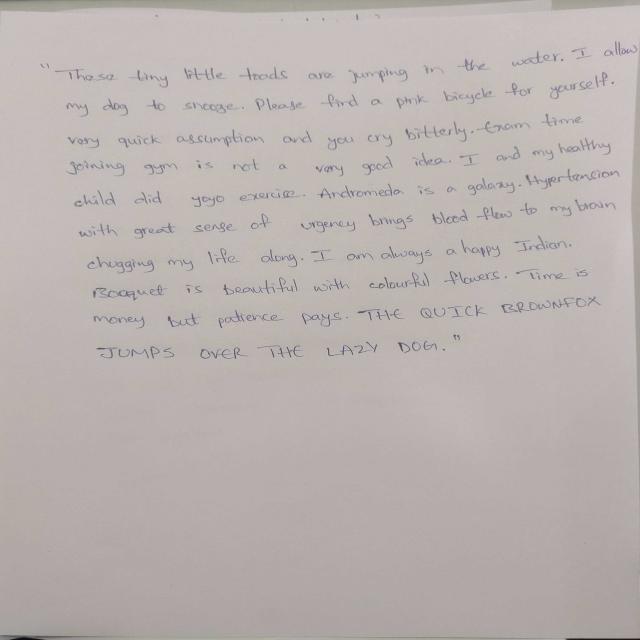 "These tiny little toads are jumping in the water. I allow
my dog to snooze. Please find a pink bicycle for yourself.
very quick assumption and you cry bitterly. Exam time
joining gym is not a very good idea. I and my healthy
child did yoyo exercise. Andromeda is a galaxy. Hypertension
with great sense of urgency brings blood flow to my brain
chugging my life along. I am always a happy Indian.
Bocquet is beautiful with colourful flowers. Time is
money but patience pays. THE QUICK BROWNFOX
JUMPS OVER THE LAZY DOG."